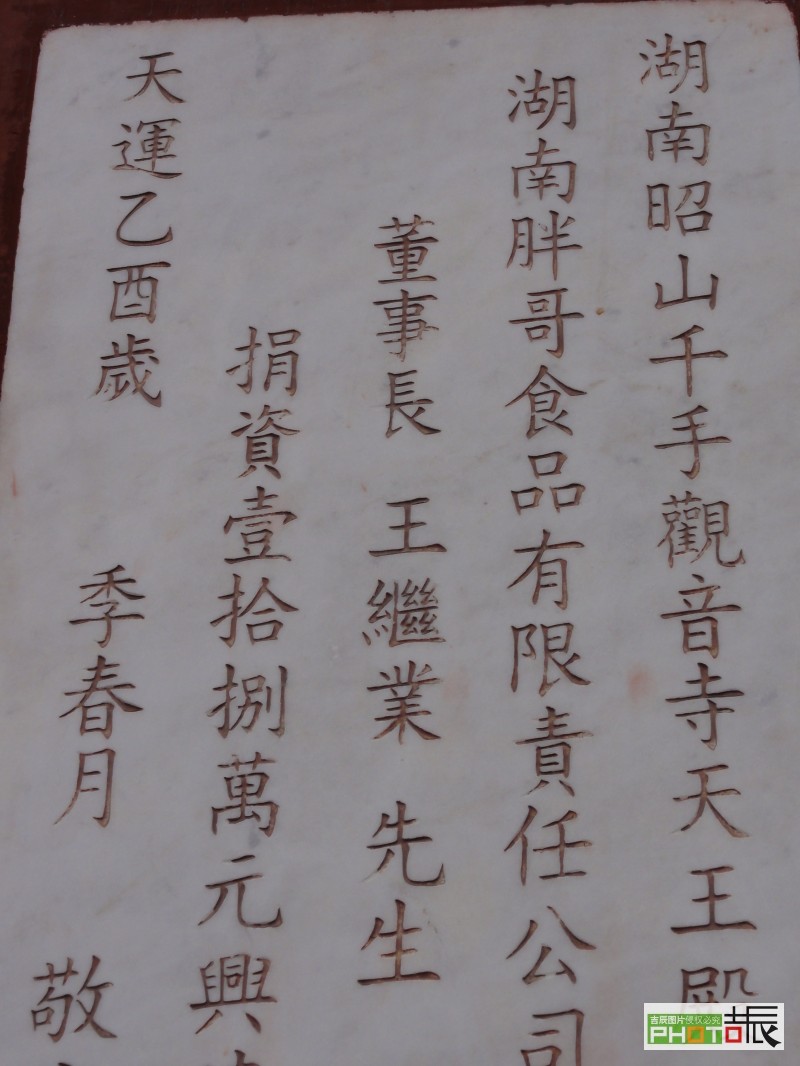 湖南昭山千手觀音寺天王殿
湖南胖哥食品有限責任公司
董事長 王繼業 先生
捐資壹拾捌萬元興
天運乙酉歲 季春月 敬
吉辰图片侵权必究
PHOTO辰